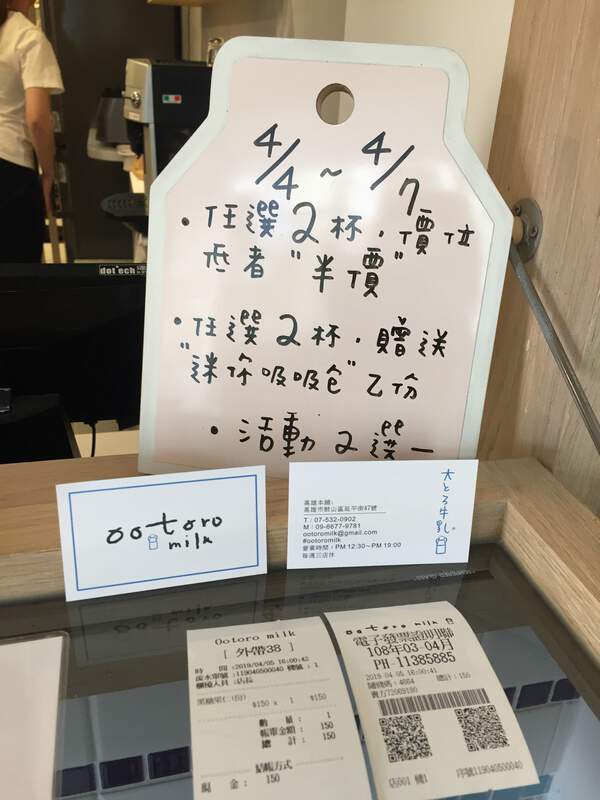 dot'ech
4/4 ~ 4/7
• 任選2杯，價位
低者"半價"
• 任選2杯，贈送
"迷你吸吸包"乙份
• 活動2選一
ootoro
milk
高雄本舖：
高雄市鼓山區延平街47號
T : 07-532-0902
M : 09-6677-9781
ootoromilk@gmail.com
#ootoromilk
營業時間：PM 12:30~PM 19:00
每週三店休
大とろ牛乳
Ootoro milk
[ 外帶38 ]
時 間:2019/04/05 16:00:42
流水單號:119040500040 機號:1
$150 x 1 $150
數 量： 1
帳單金額： 150
總 計： 150
結帳方式
現 金： 150
ootoro milk
電子發票證明聯
108年03-04月
PH-11385885
2019-04-05 16:00:41
隨機碼：4664 總計：150
賣方72669180
店001 機1 序號119040500040